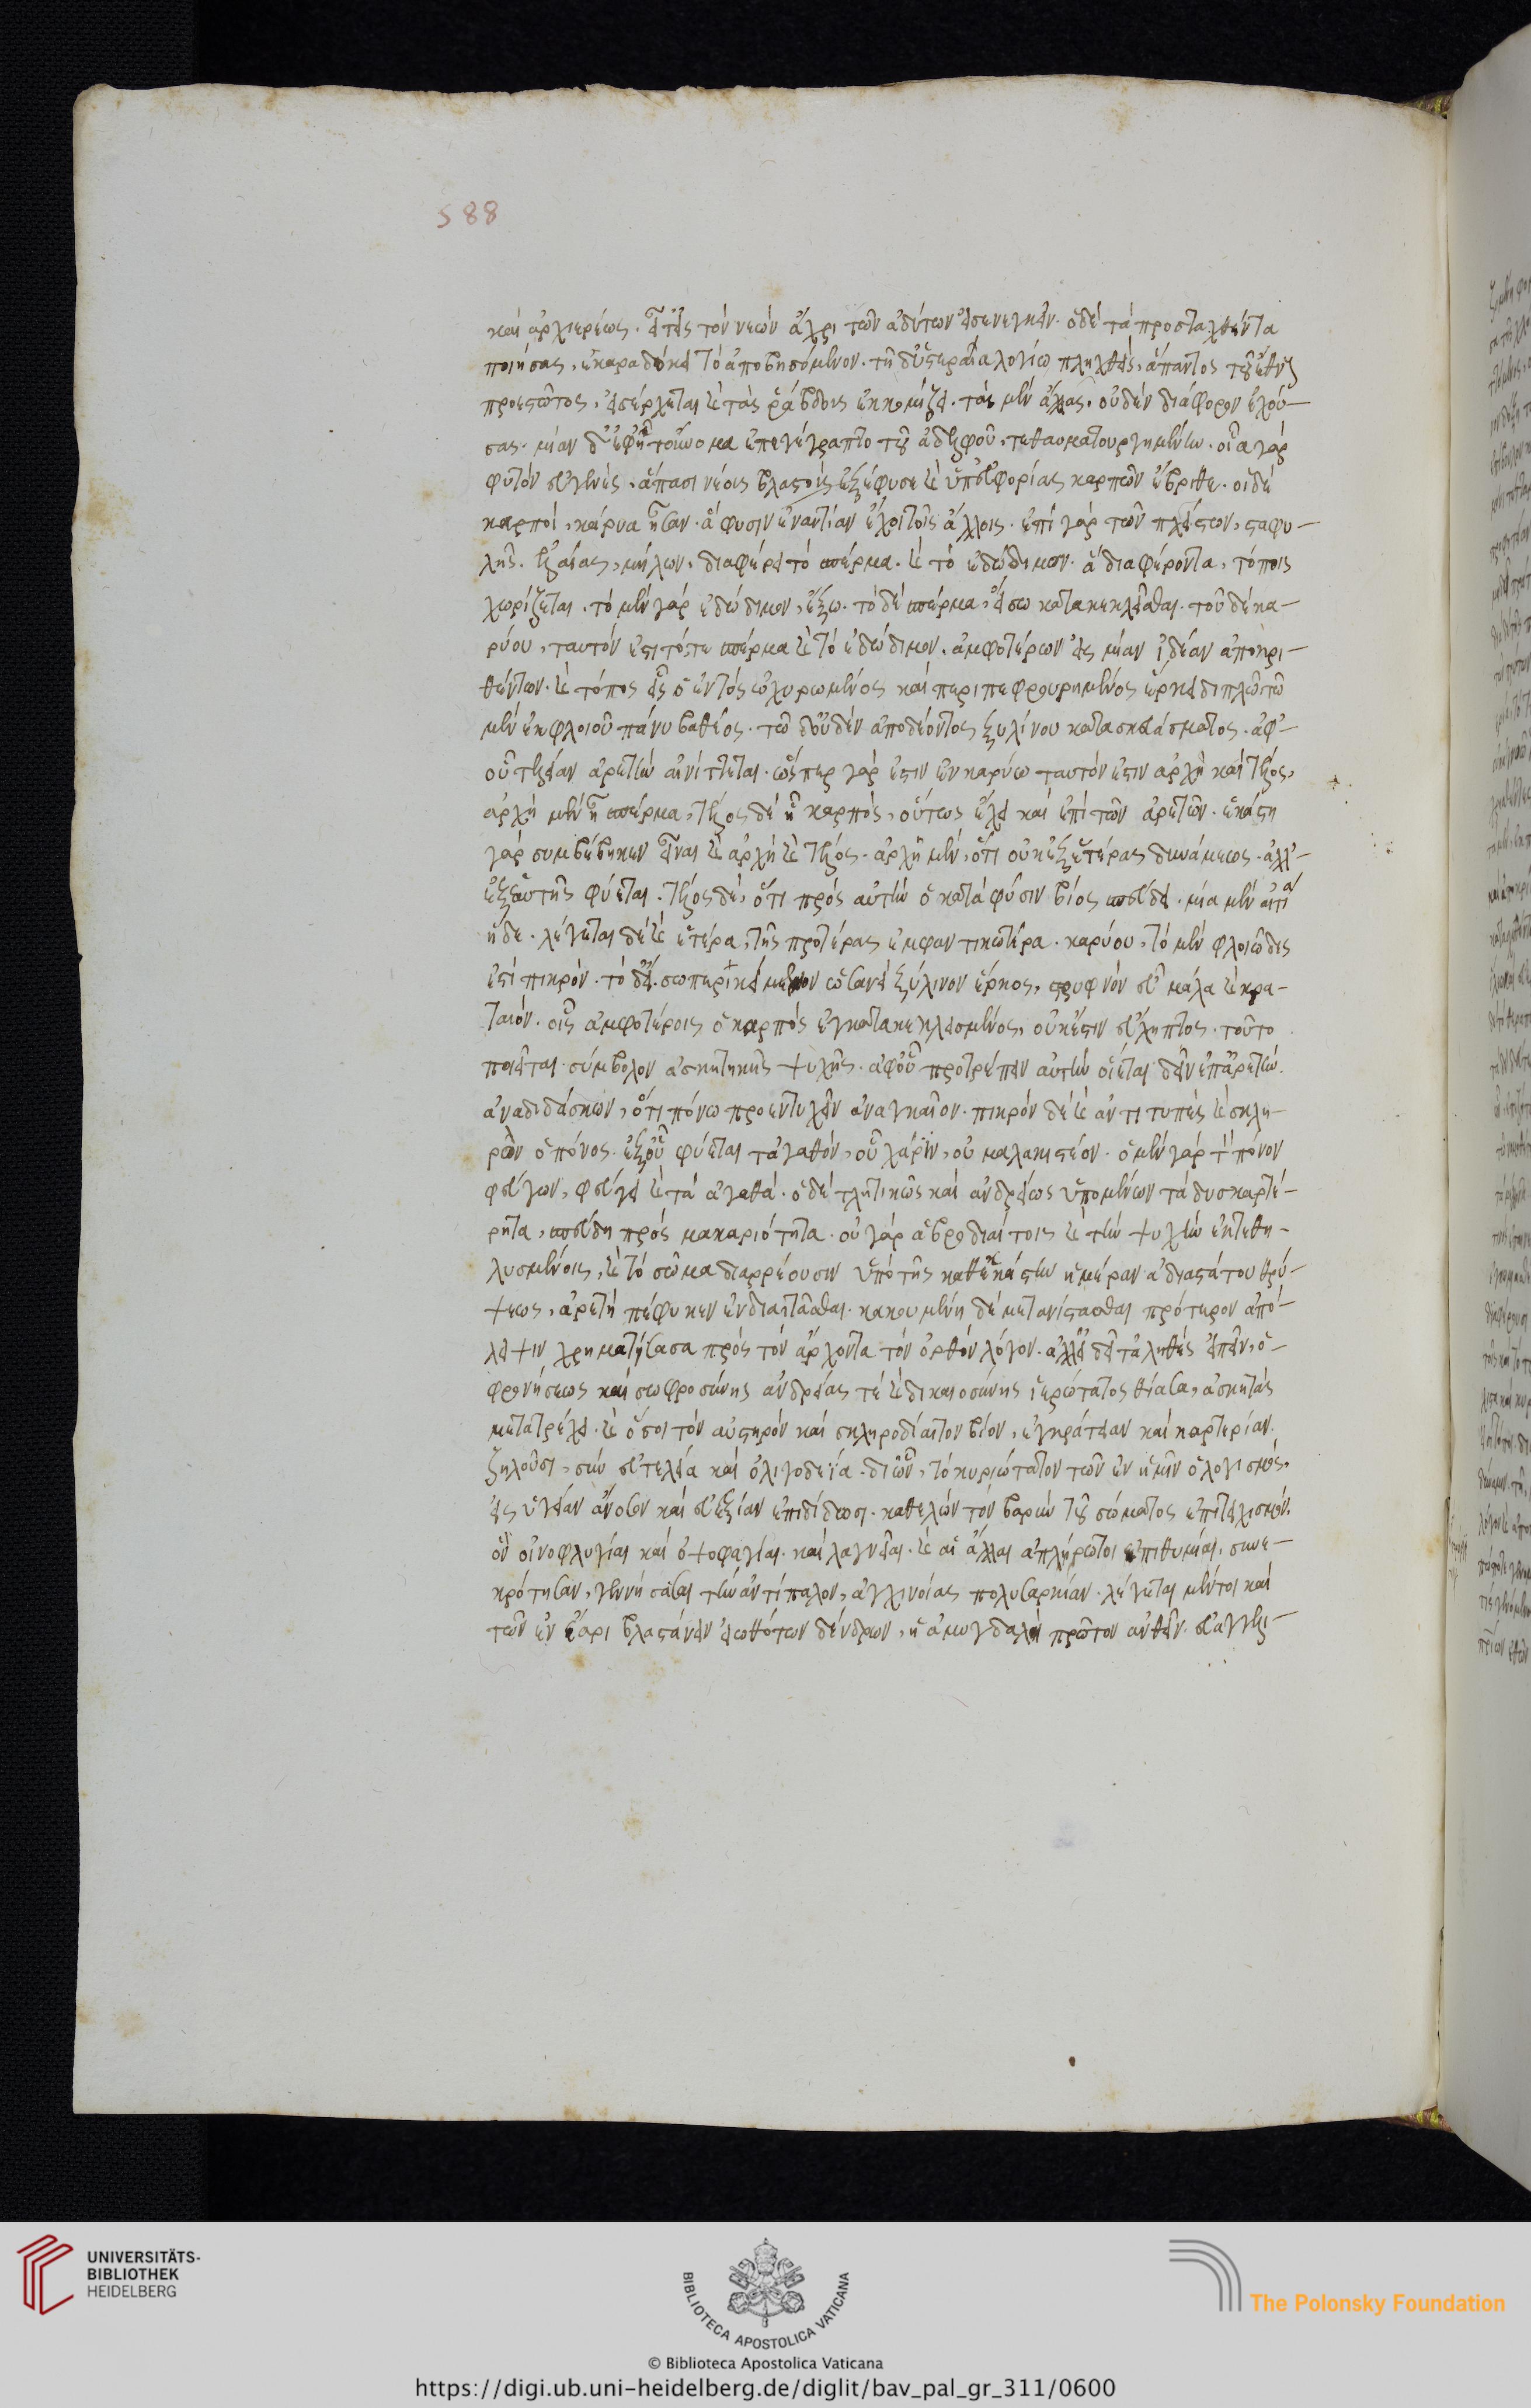 588
καὶ ἀρχιερέως. εἶτ' εἰς τὸν νεὼν ἄχρι τῶν ἀδύτων εἰσενεγκεῖν. ὁ δὲ τὰ προσταχθέντα
ποιήσας, ἐκαραδόκει τὸ ἀποβησόμενον. τῇ δ' ὑστεραίᾳ λογίῳ πληχθεὶς, ἅπαντος τοῦ ἔθνους
προεστῶτος, εἰσέρχεται καὶ τὰς ῥάβδους ἐκκομίζει. τὰς μὲν ἄλλας, οὐδὲν διάφορον ἐχού-
σας. μίαν δ' ἐφ' ᾗ τοὔνομα ἐπεγέγραπτο τοῦ ἀδελφοῦ, τεθαυματουργημένην. οἷα γὰρ
φυτὸν εὐγενὲς, ἅπασι νέοις βλαστοῖς ἐξέφυσε καὶ ὑπ' εὐφορίας καρπῶν ἔβριθε. οἱ δὲ
καρποὶ, κάρυα ἦσαν. ἃ φύσιν ἐναντίαν ἔχοι τοῖς ἄλλοις. ἐπὶ γὰρ τῶν πλείστων, σταφυ-
λῆς. ἐλαίας, μήλων, διαφέρει τὸ σπέρμα. καὶ τὸ ἐδώδιμον. ἃ διαφέροντα, τόποις
χωρίζεται. τὸ μὲν γὰρ ἐδώδιμον, ἔξω. τὸ δὲ σπέρμα, εἴσω κατακεκλεῖσθαι. τοῦ δὲ κα-
ρύου, ταυτόν ἐστι τό, τε σπέρμα καὶ τὸ ἐδώδιμον. ἀμφοτέρων εἰς μίαν ἰδέαν ἀποκρι-
θέντων. καὶ τόπος εἷς ὁ ἐντὸς ὠχυρωμένος καὶ περιπεφρουρημένος ἕρκει διπλῷ τῷ
μὲν ἐκ φλοιοῦ πάνυ βαθέος. τῷ δ' οὐδὲν ἀποδέοντος ξυλίνου κατασκευάσματος. ἀφ'
οὗ τελείαν ἀρετὴν αἰνίττεται. ὥσπερ γάρ ἐστιν ἐν καρύῳ ταυτόν ἐστιν ἀρχὴ καὶ τέλος,
ἀρχὴ μὲν ᾗ σπέρμα, τέλος δὲ ᾗ καρπὸς, οὕτως ἔχει καὶ ἐπὶ τῶν ἀρετῶν. ἑκάστῃ
γὰρ συμβέβηκεν εἶναι καὶ ἀρχὴ καὶ τέλος. ἀρχὴ μὲν, ὅτι οὐκ ἐξ ἑτέρας δυνάμεως. ἀλλ'
ἐξ ἑαυτῆς φύεται. τέλος δὲ, ὅτι πρὸς αὐτὴν ὁ κατὰ φύσιν βίος σπεύδει. μία μὲν αἰτία
ἥδε. λέγεται δὲ καὶ ἑτέρα, τῆς προτέρας ἐμφαντικωτέρα. καρύου, τὸ μὲν φλοιῶδές
ἐστι πικρόν. τὸ δ' εἴσω περικείμενον ὡσανεὶ ξύλινον ἕρκος, στρυφνὸν εὖ μάλα καὶ κρα-
ταιόν. οἷς ἀμφοτέροις ὁ καρπὸς ἐγκατακεκλεισμένος, οὐκ ἔστιν εὔληπτος. τοῦτο
ποιεῖται σύμβολον ἀσκητικῆς ψυχῆς. ἀφ' οὗ προτρέπειν αὐτὴν οἴεται δεῖν ἐπ' ἀρετὴν.
ἀναδιδάσκων, ὅτι πόνῳ προεντυχεῖν ἀναγκαῖον. πικρὸν δὲ καὶ ἀντιτυπὲς καὶ σκλη-
ρὸν ὁ πόνος. ἐξ οὗ φύεται τἀγαθὸν, οὗ χάριν, οὐ μαλακιστέον. ὁ μὲν γὰρ τὸν πόνον
φεύγων, φεύγει καὶ τὰ ἀγαθά. ὁ δὲ τλητικῶς καὶ ἀνδρείως ὑπομένων τὰ δυσκαρτέ-
ρητα, σπεύδει πρὸς μακαριότητα. οὐ γὰρ ἁβροδιαίτοις καὶ τὴν ψυχὴν ἐκτεθη-
λυσμένοις, καὶ τὸ σῶμα διαρρέουσιν ὑπὸ τῆς καθ' ἑκάστην ἡμέραν ἀδιαστάτου θρύ-
ψεως, ἀρετὴ πέφυκεν ἐνδιαιτᾶσθαι. κακουμένη δὲ μετανίστασθαι πρότερον ἀπό-
λειψιν χρηματίσασα πρὸς τὸν ἄρχοντα τὸν ὀρθὸν λόγον. ἀλλ' εἰ δεῖ τἀληθὲς εἰπεῖν, ὁ
φρονήσεως καὶ σωφροσύνης ἀνδρείας τὲ καὶ δικαιοσύνης ἱερώτατος θίασος, ἀσκητὰς
μετατρέχει. καὶ ὅσοι τὸν αὐστηρὸν καὶ σκληροδίαιτον βίον, ἐγκράτειαν καὶ καρτερίαν.
ζηλοῦσι, σὺν εὐτελείᾳ καὶ ὀλιγοδεΐα. δι' ὧν, τὸ κυριώτατον τῶν ἐν ἡμῖν ὁ λογισμὸς,
εἰς ὑγείαν ἄνοσον καὶ εὐεξίαν ἐπιδίδωσι. καθελὼν τὸν βαρὺν τοῦ σώματος ἐπιτειχισμόν.
ὃν οἰνοφλυγίαι καὶ ὀψοφαγίαι. καὶ λαγνεῖαι. καὶ αἱ ἄλλαι ἀπλήρωτοι ἐπιθυμίαι, συνε-
κρότησαν, γεννήσασαι τὴν ἀντίπαλον, ἀγχινοίας πολυσαρκίαν. λέγεται μέντοι καὶ
τῶν ἐν ἔαρι βλαστάνειν εἰωθότων δένδρων, ἡ ἀμυγδαλῆ πρῶτον ἀνθεῖν. εὐαγγελι-
UNIVERSITÄTS-
BIBLIOTHEK
HEIDELBERG
BIBLIOTECA APOSTOLICA VATICANA
The Polonsky Foundation
© Biblioteca Apostolica Vaticana
https://digi.ub.uni-heidelberg.de/diglit/bav_pal_gr_311/0600